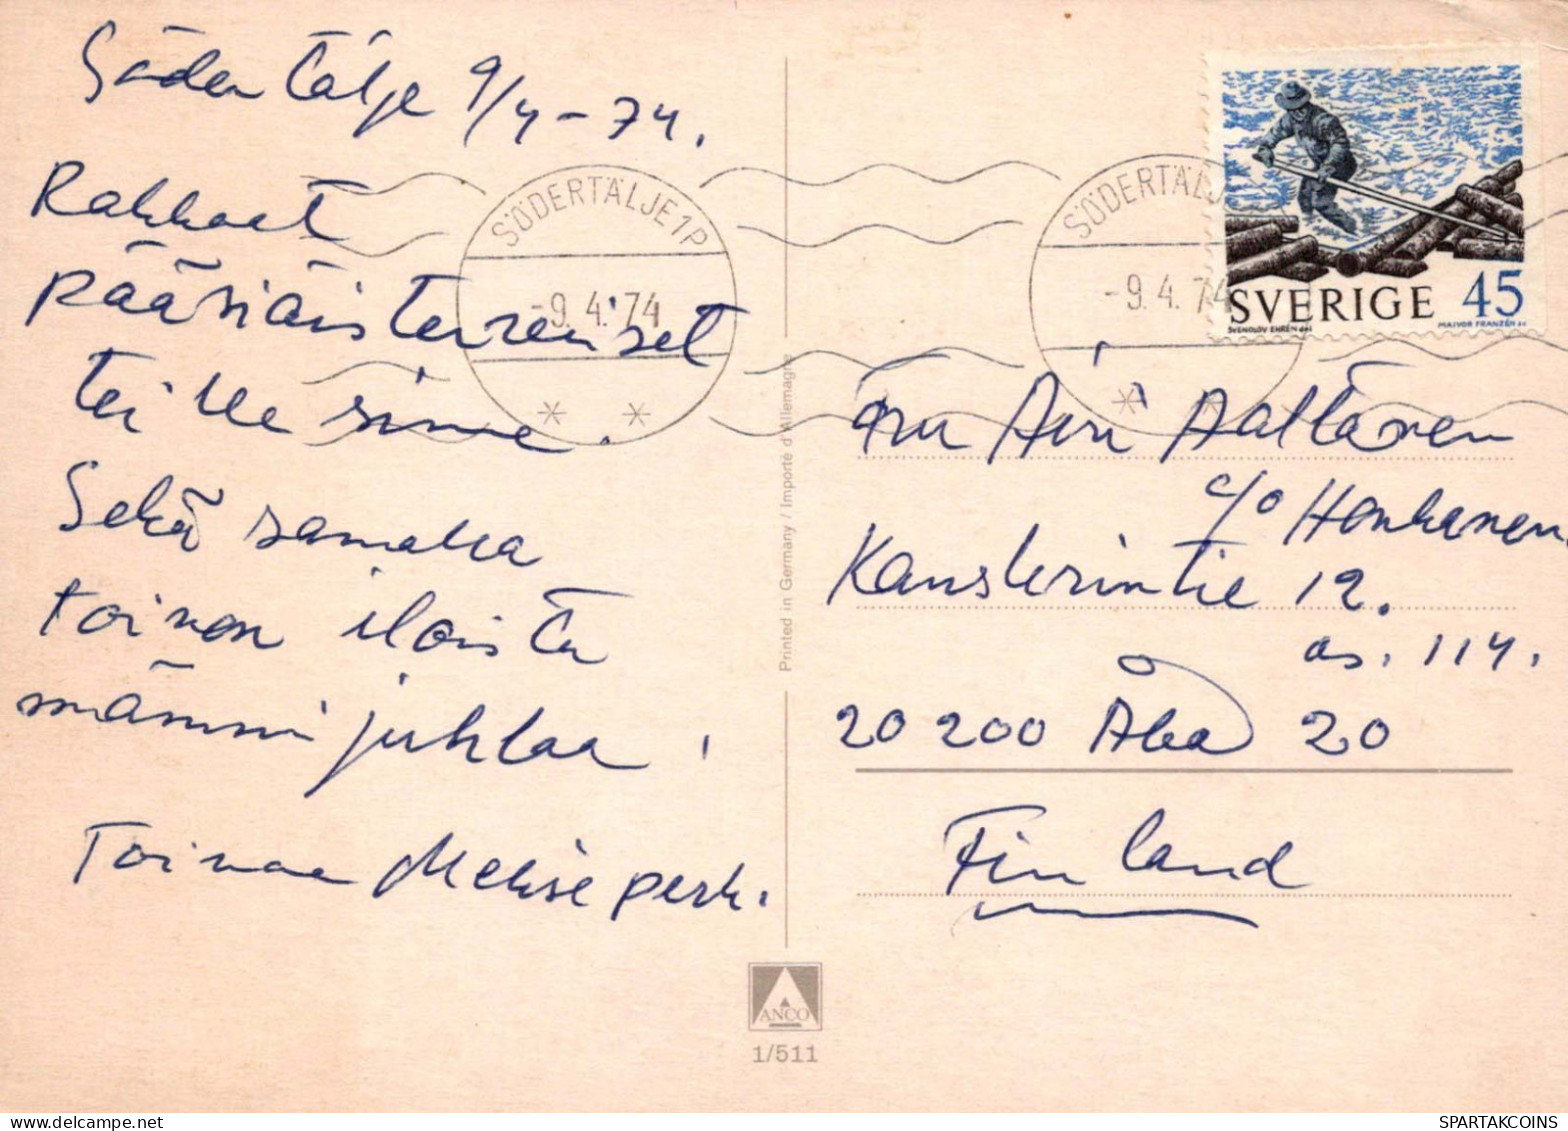 Södertälje 9/4-74.
Rakkaat
pääsiäisterveiset
teille sinne.
Sekä samalla
toivon iloista
mämmi juhlaa.
Toivoo
perh.
SÖDERTÄLJE 1P
-9.4.74
SÖDERTÄL
-9.4.74
SVERIGE 45
SVENOLOV EHRÉN del.
MAJVOR FRANZÉN sc.
Fru Airi Aaltonen
c/o Honkanen
Kanslerintie 12.
as. 114.
20200 Åbo 20
Finland
Printed in Germany / Importé d'Allemagne
ANCO
1/511
SPARTAKCOINS